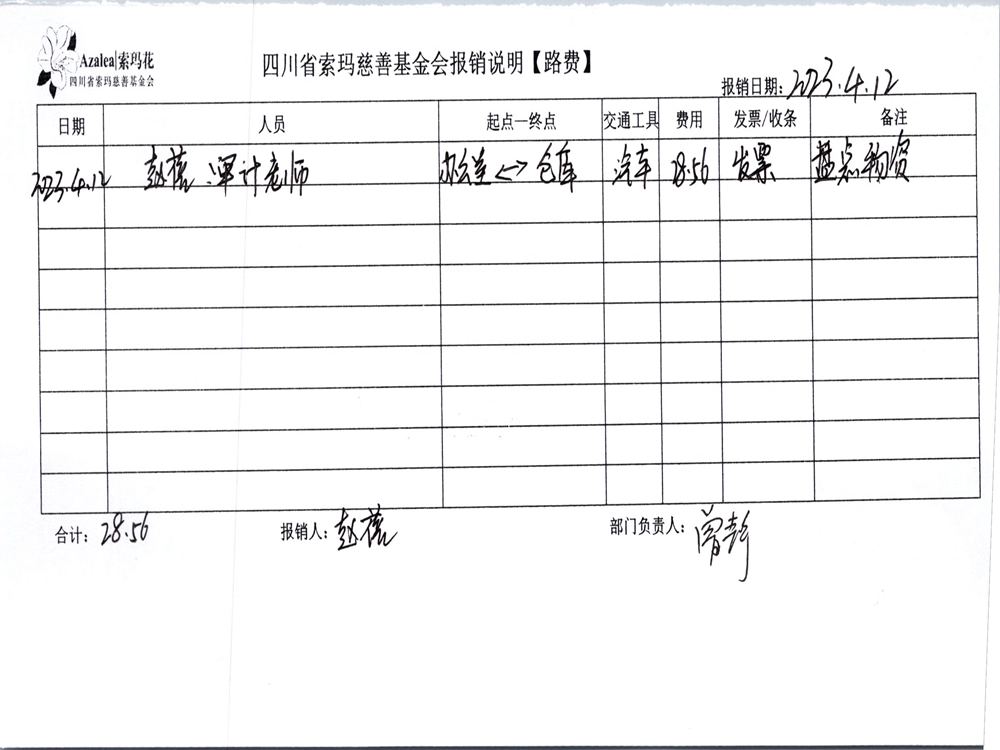 Azalea|索玛花
四川省索玛慈善基金会
四川省索玛慈善基金会报销说明【路费】
报销日期：2023.4.12
日期 人员 起点—终点 交通工具 费用 发票/收条 备注
2023.4.12 赵蓓、审计老师 办公室<->仓库 汽车 28.56 发票 盘点物资
合计：28.56 报销人：赵蓓 部门负责人：曾彭